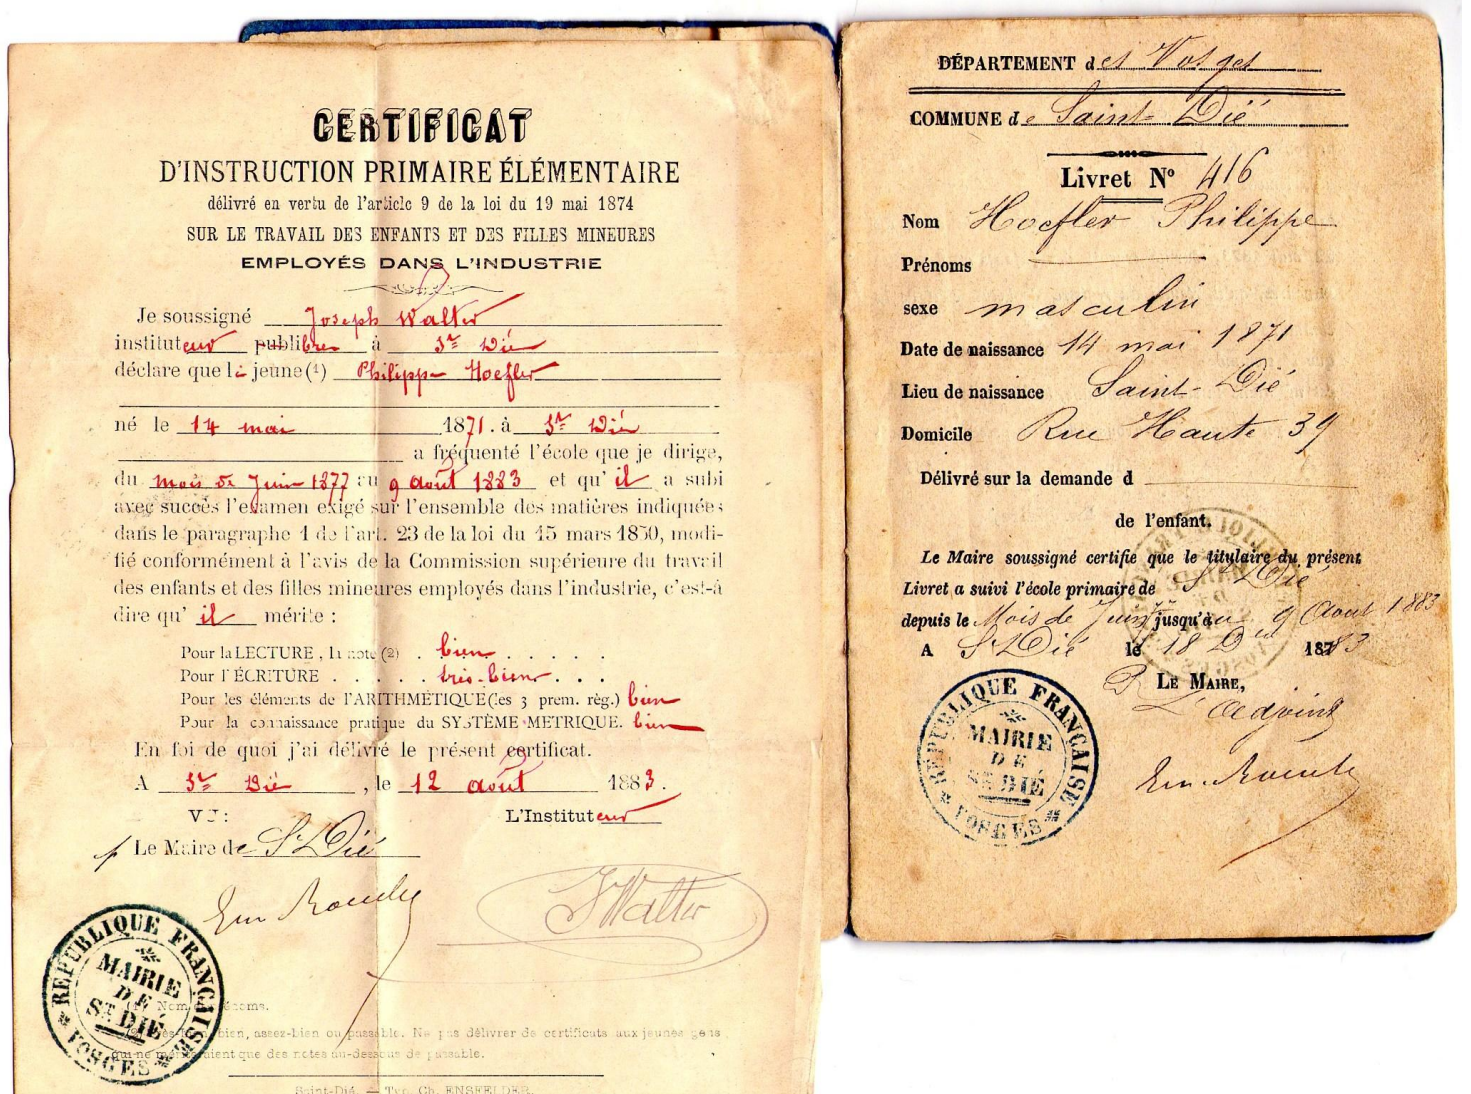 CERTIFICAT
D'INSTRUCTION PRIMAIRE ÉLÉMENTAIRE
délivré en vertu de l'article 9 de la loi du 19 mai 1874
SUR LE TRAVAIL DES ENFANTS ET DES FILLES MINEURES
EMPLOYÉS DANS L'INDUSTRIE
Je soussigné Joseph Walter
instituteur publibre à St Dié
déclare que le jeune (1) Philippe Hoefler
né le 14 mai 1871. à St Dié
a fréquenté l'école que je dirige,
du mois de Juin 1877 au 9 août 1883 et qu'il a subi
avec succès l'examen exigé sur l'ensemble des matières indiquées
dans le paragraphe 1 de l'art. 23 de la loi du 15 mars 1850, modi-
fié conformément à l'avis de la Commission supérieure du travail
des enfants et des filles mineures employés dans l'industrie, c'est-à
dire qu' il mérite :
Pour la LECTURE, la note (2) . bien . . . . .
Pour l'ÉCRITURE . . . . . très-bien . . .
Pour les éléments de l'ARITHMÉTIQUE (les 3 prem. règ.) bien
Pour la connaissance pratique du SYSTÈME METRIQUE. bien
En foi de quoi j'ai délivré le présent certificat.
A St Dié , le 12 août 1883.
VU : L'Instituteur
p Le Maire de St Dié
J Walter
RÉPUBLIQUE FRANÇAISE
MAIRIE
DE
ST DIÉ
VOSGES
(1) Nom et prénoms.
(2) Très-bien, bien, assez-bien ou passable. Ne pas délivrer de certificats aux jeunes gens
qui ne mériteraient que des notes au-dessous de passable.
Saint-Dié. — Typ. Ch. ENSFELDER.
DÉPARTEMENT des Vosges
COMMUNE de Saint-Dié
Livret No 416
Nom Hoefler Philippe
Prénoms
sexe masculin
Date de naissance 14 mai 1871
Lieu de naissance Saint-Dié
Domicile Rue Haute 39
Délivré sur la demande d
de l'enfant.
Le Maire soussigné certifie que le titulaire du présent
Livret a suivi l'école primaire de St Dié
depuis le Mois de Juin 77 jusqu'au 9 Aout 1883
A St Dié le 18 Dre 1883
P LE MAIRE,
L'adjoint
RÉPUBLIQUE FRANÇAISE
MAIRIE
DE
ST DIÉ
VOSGES